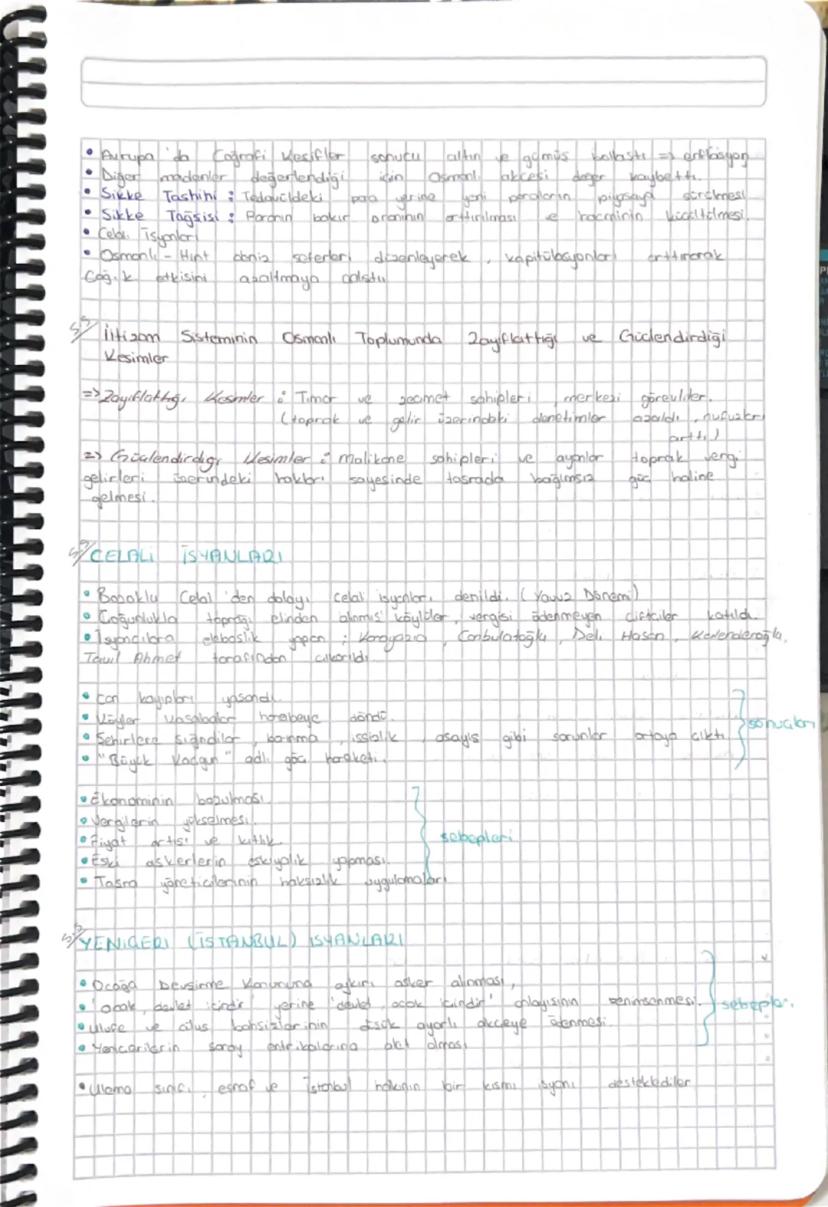 • Avrupa'da Coğrafi Keşifler sonucu altın ve gümüş bollaştı => enflasyon
• Diğer madenler değerlendiği için Osmanlı akçesi değer kaybetti.
• Sikke Tashihi : Tedavüldeki para yerine yeni paraların piyasaya sürülmesi
• Sikke Tağşişi : Paranın bakır oranının arttırılması ve hacminin küçültülmesi.
• Celali İsyanları
• Osmanlı - Hint deniz seferleri düzenleyerek, kapitülasyonları arttırarak
Coğ. k etkisini azaltmaya çalıştı
İltizam Sisteminin Osmanlı Toplumunda Zayıflattığı ve Güçlendirdiği
Kesimler
=> Zayıflattığı Kesimler : Tımar ve zeamet sahipleri, merkezi görevliler.
(toprak ve gelir üzerindeki denetimler azaldı, nufuzları
arttı)
=> Güçlendirdiği Kesimler : malikane sahipleri ve ayanlar toprak vergi
gelirleri üzerindeki hakları sayesinde taşrada bağımsız güç haline
gelmesi.
CELALİ İSYANLARI
• Bozoklu Celal'den dolayı Celali isyanları denildi. (Yavuz Dönemi)
• Çoğunlukla toprağı elinden alınmış köylüler, vergisi ödenmeyen çiftçiler katıldı.
• İsyancılara elebaşlık yapan ; Karayazıcı, Canbulatoğlu, Deli Hasan, Kalenderoğlu,
Tavil Ahmet tarafından çıkarıldı.
• Can kayıpları yaşandı.
• Köyler kasabalar harabeye döndü.
• Şehirlere sığındılar, barınma, işsizlik, asayiş gibi sorunlar ortaya çıktı
• "Büyük Kaçgun" adlı göç hareketi.
sonuçları
• Ekonominin bozulması
• Vergilerin yükselmesi.
• Fiyat artışı ve kıtlık
• Eski askerlerin eşkiyalık yapması.
• Taşra yöneticilerinin haksızlık uygulamaları
sebepleri
YENİÇERİ (İSTANBUL) İSYANLARI
• Ocağa Devşirme Kanununa aykırı asker alınması,
• 'ocak, devlet içindir' yerine 'devlet, ocak içindir' anlayışının benimsenmesi.
• Ulufe ve cülus bahşişlerinin düşük ayarlı akçeye ödenmesi.
• Yeniçerilerin saray entrikalarına alet olması
sebepleri
• Ulema sınıfı, esnaf ve İstanbul halkının bir kısmı isyanı desteklediler